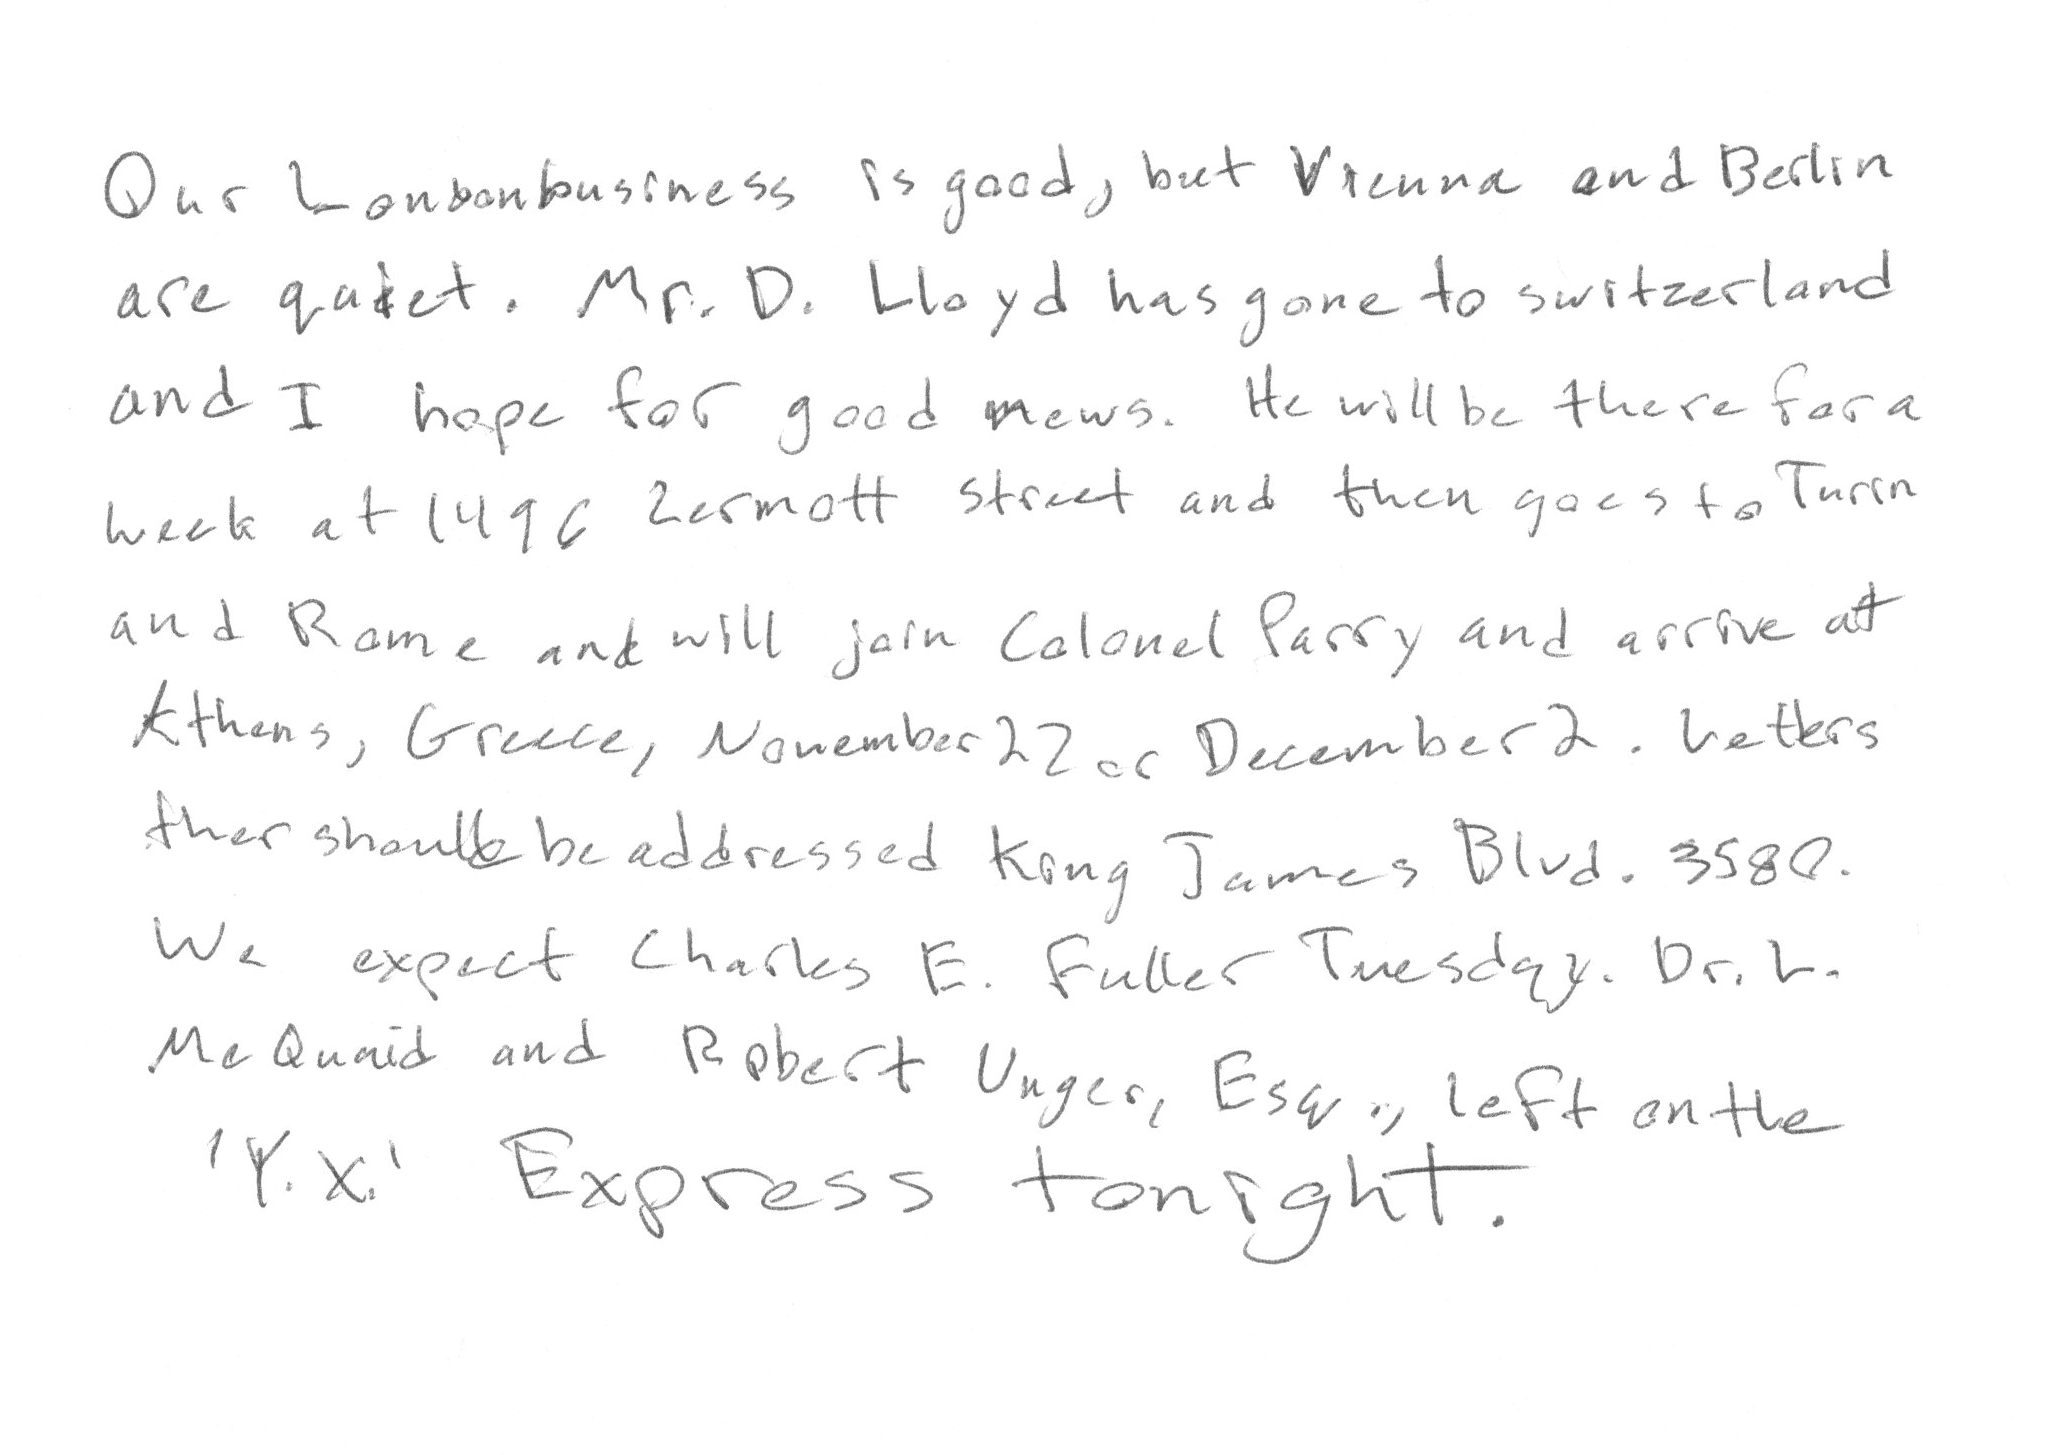 Our Londonbusiness is good, but Vienna and Berlin
are quiet. Mr. D. Lloyd has gone to switzerland
and I hope for good mews. He will be there for a
week at 1496 Zermott street and then goes to Turin
and Rome and will join Colonel Parry and arrive at
Athens, Greece, November 22 or December 2. Letters
ther should be addressed King James Blvd. 3580.
We expect Charles E. Fuller Tuesday. Dr. L.
McQuaid and Robert Unger, Esq., left on the
'Y.X.' Express tonight.